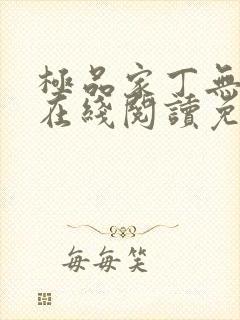 極品家丁無
在綫閱讀免
每每笑